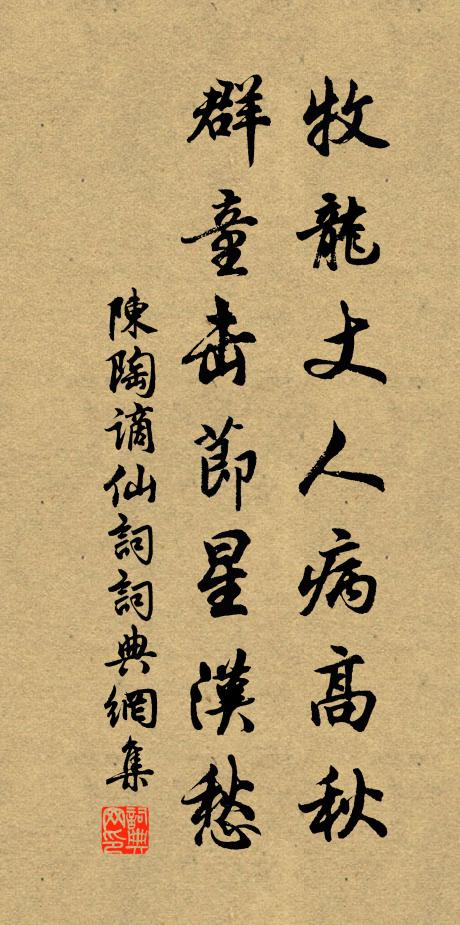 牧龍丈人病高秋
群童击節星漢愁
陳陶謫仙詞詞典網集
詞典网印